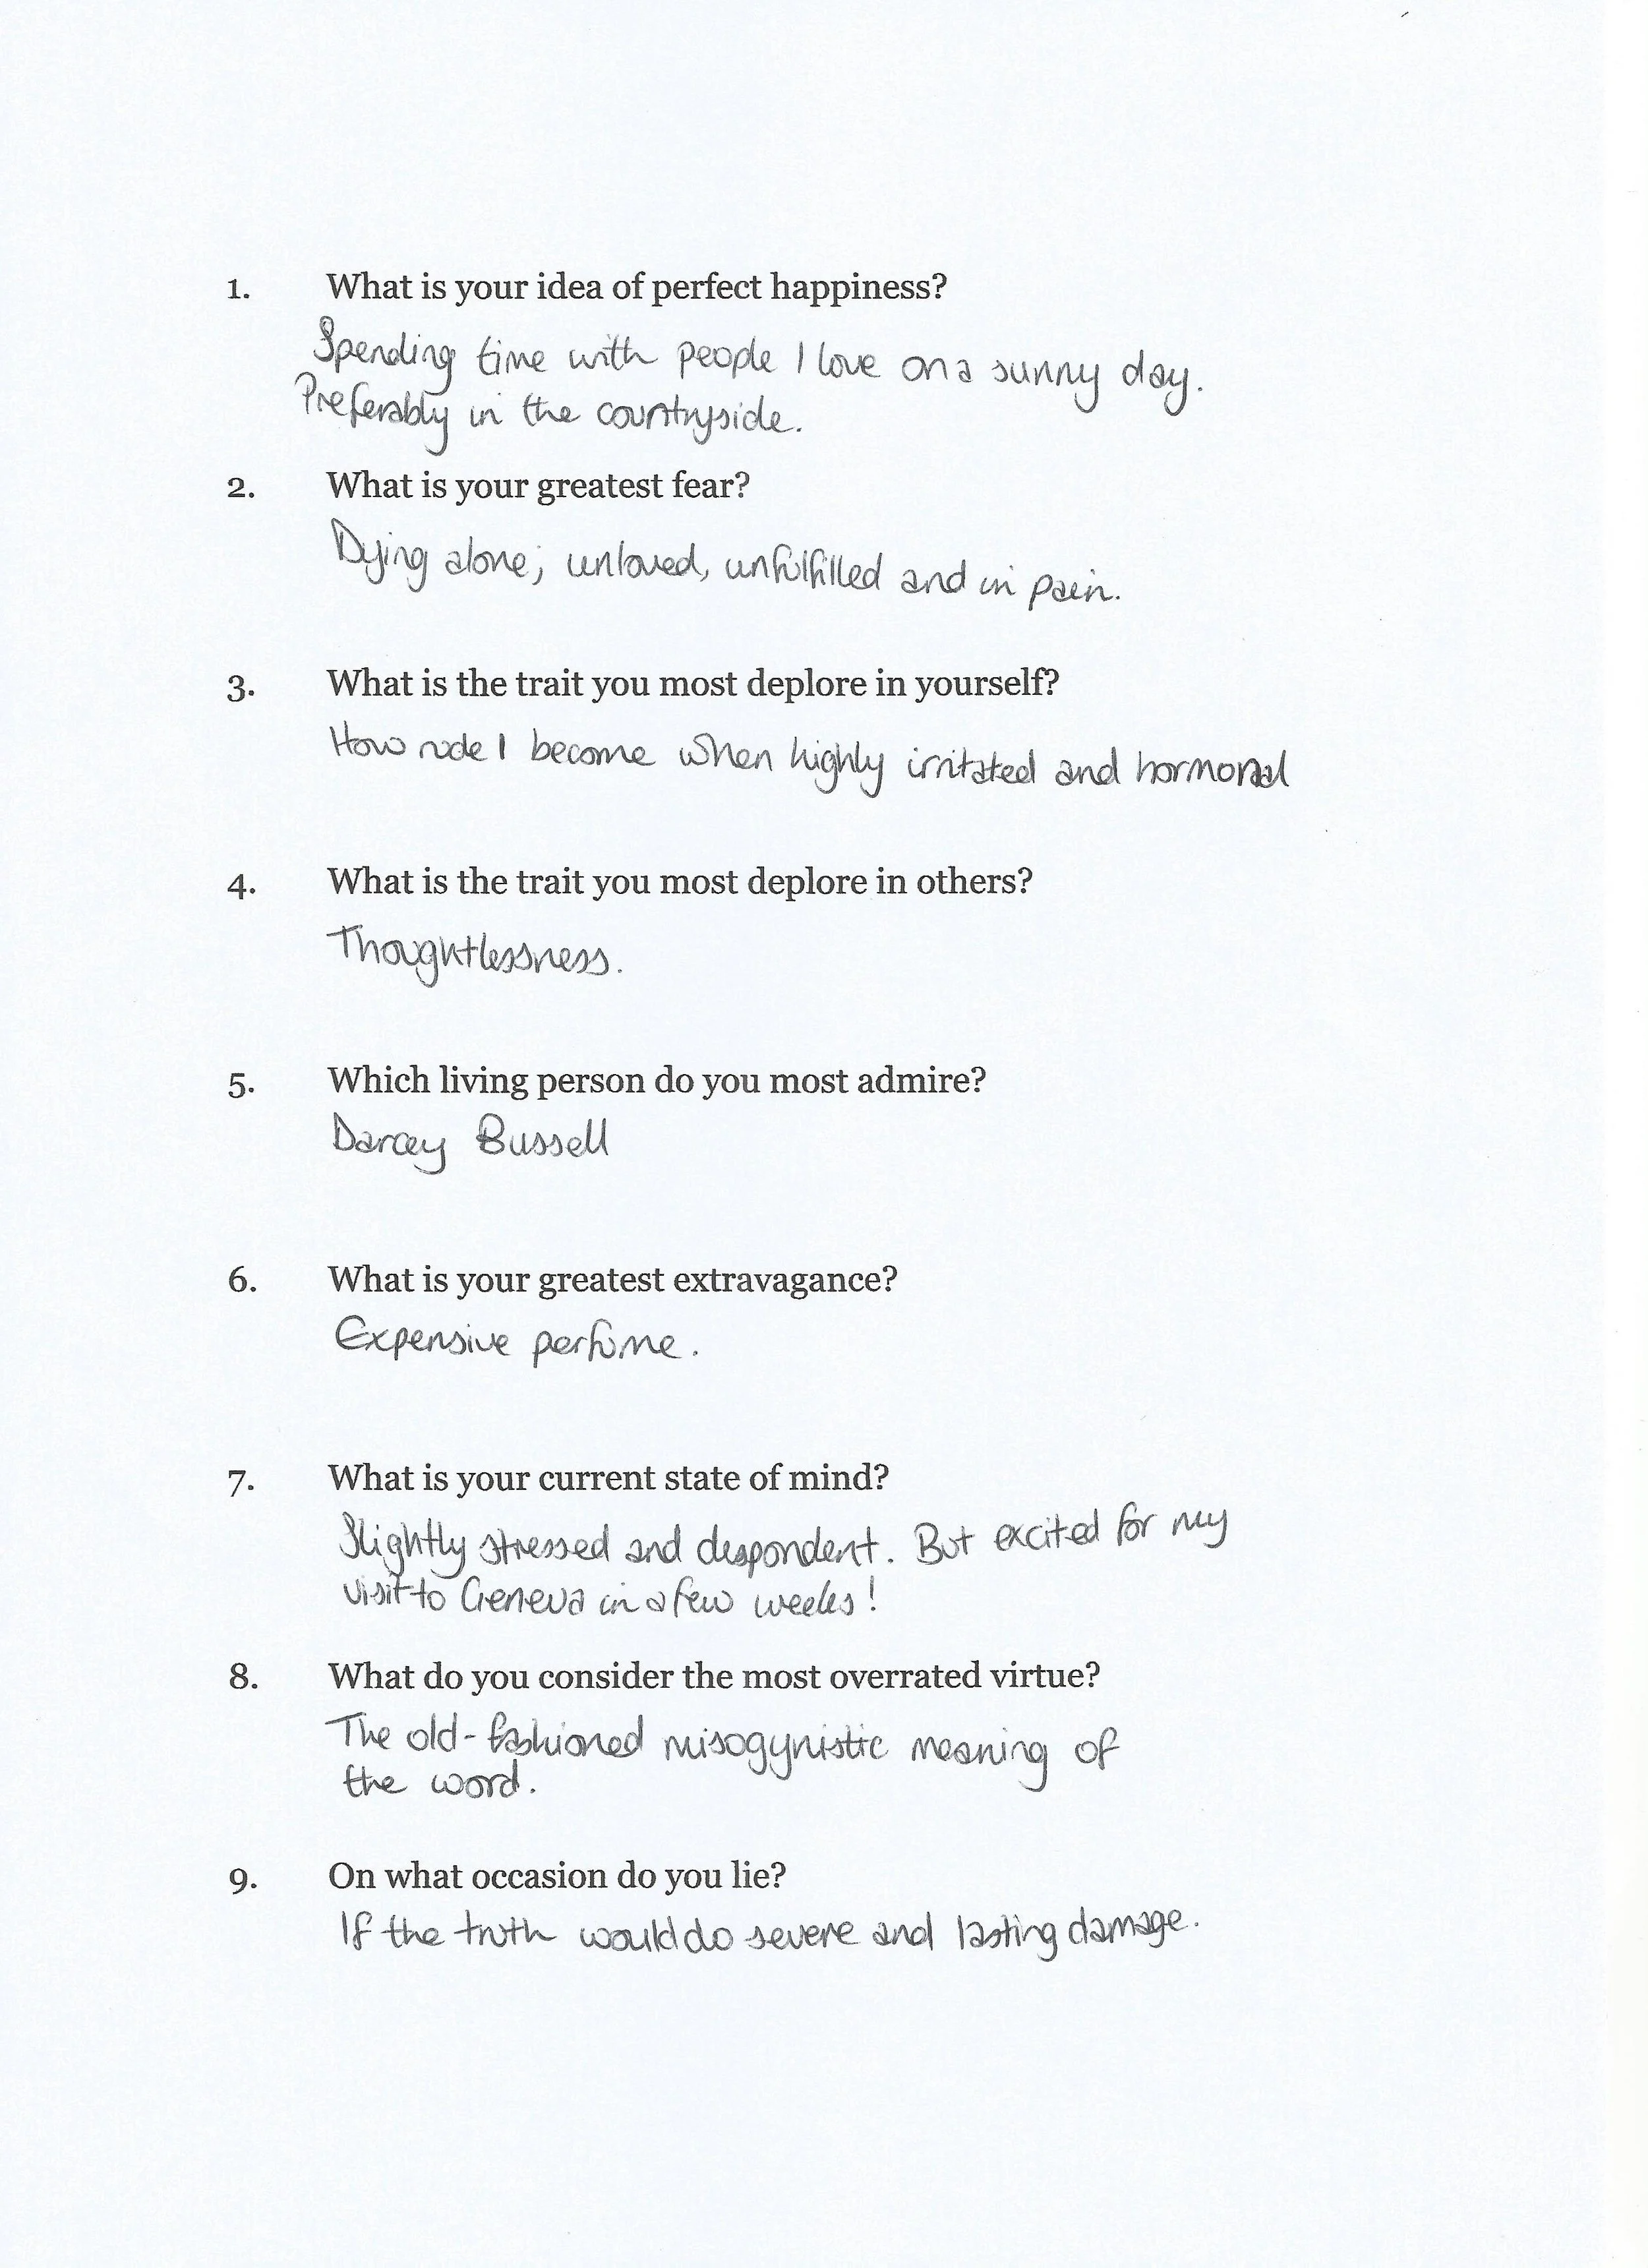 1. What is your idea of perfect happiness?
Spending time with people I love on a sunny day.
Preferably in the countryside.
2. What is your greatest fear?
Dying alone; unloved, unfulfilled and in pain.
3. What is the trait you most deplore in yourself?
How rude I become when highly irritated and hormonal
4. What is the trait you most deplore in others?
Thoughtlessness.
5. Which living person do you most admire?
Darcey Bussell
6. What is your greatest extravagance?
Expensive perfume.
7. What is your current state of mind?
Slightly stressed and despondent. But excited for my
visit to Geneva in a few weeks!
8. What do you consider the most overrated virtue?
The old-fashioned misogynistic meaning of
the word.
9. On what occasion do you lie?
If the truth would do severe and lasting damage.